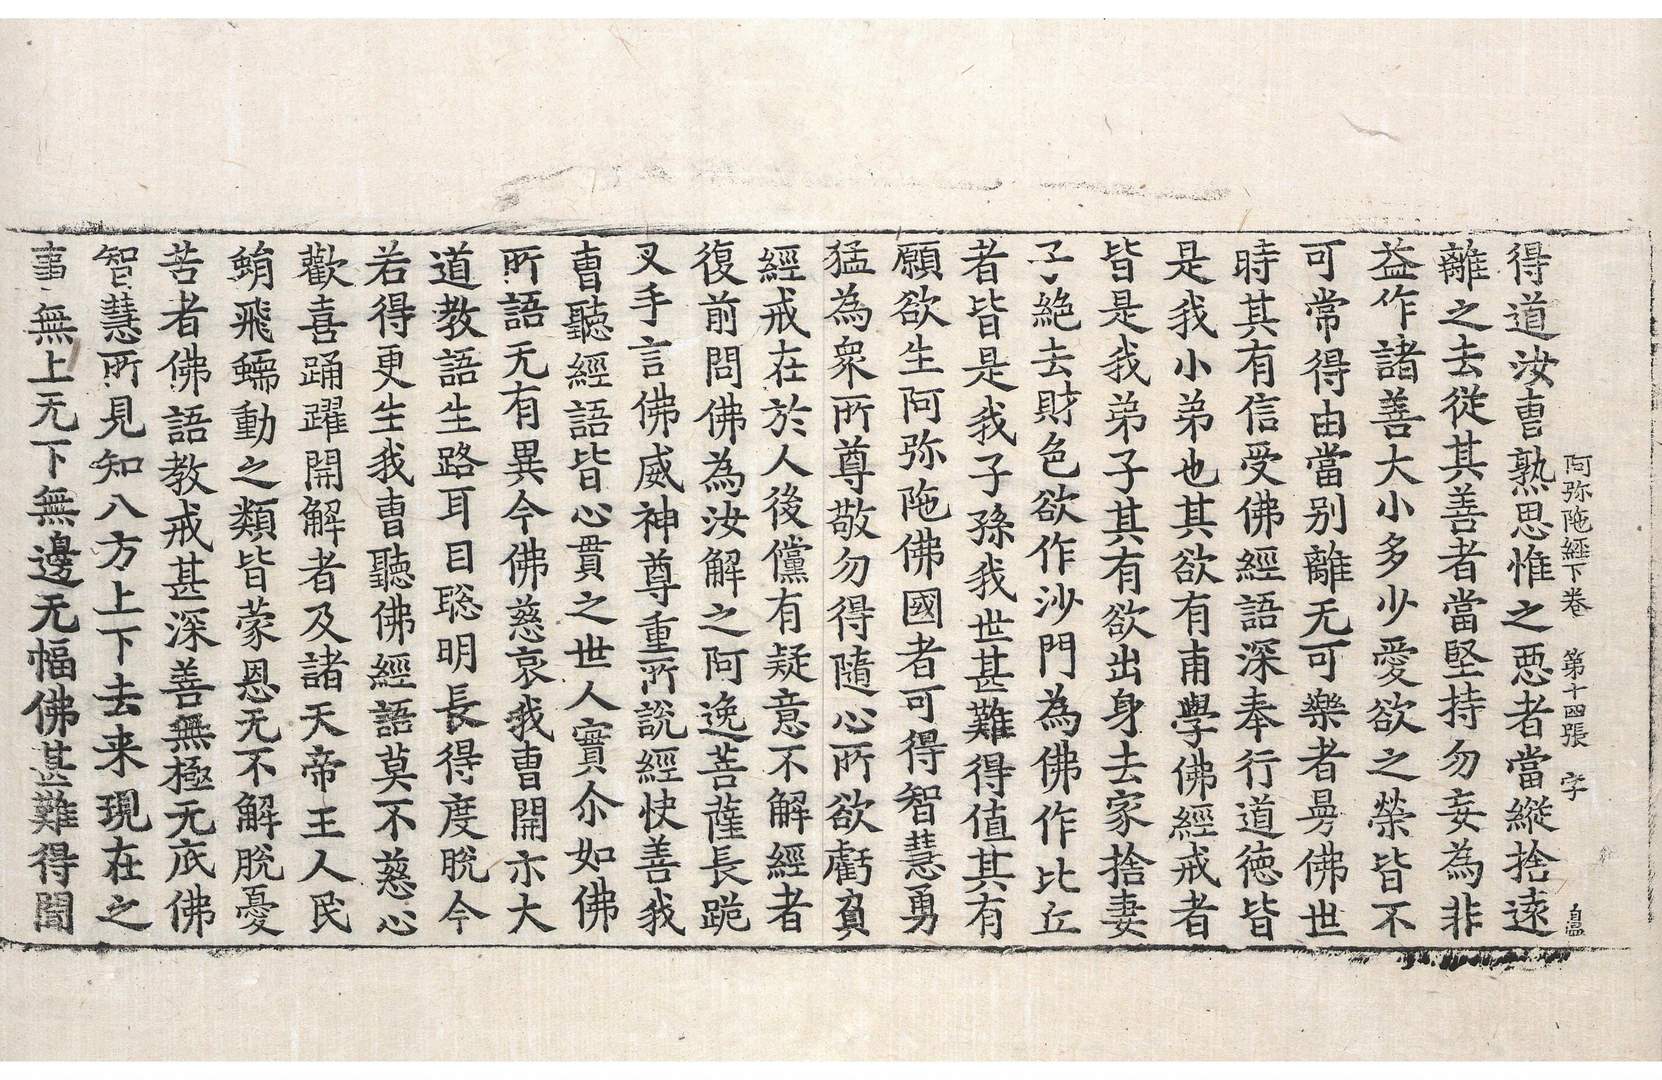 阿弥陁經下卷　第十四張　字
得道汝曺熟思惟之惡者當縱捨遠
離之去從其善者當堅持勿妄為非
益作諸善大小多少愛欲之榮皆不
可常得由當别離无可樂者曼佛世
時其有信受佛經語深奉行道徳皆
是我小弟也其欲有甫學佛經戒者
皆是我弟子其有欲出身去家捨妻
子絶去財色欲作沙門為佛作比丘
者皆是我子孫我世甚難得值其有
願欲生阿弥陁佛國者可得智慧勇
猛為衆所尊敬勿得隨心所欲虧負
經戒在於人後儻有疑意不解經者
復前問佛為汝解之阿逸菩薩長跪
叉手言佛威神尊重所說經快善我
曺聽經語皆心貫之世人實尒如佛
所語无有異今佛慈哀我曺開示大
道教語生路耳目聡明長得度脫今
若得更生我曺聽佛經語莫不慈心
歡喜踊躍開解者及諸天帝王人民
蜎飛蠕動之類皆蒙恩无不解脫憂
苦者佛語教戒甚深善無極无底佛
智慧所見知八方上下去来現在之
事無上无下無邊无幅佛甚難得聞